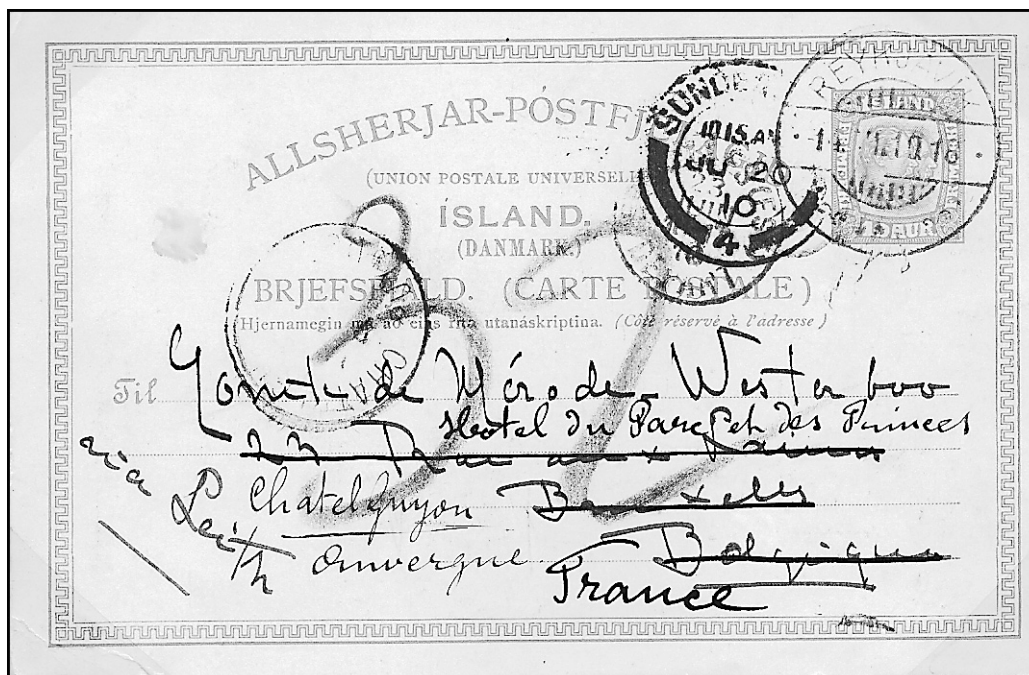 ALLSHERJAR-PÓSTFJ
(UNION POSTALE UNIVERSELL
ÍSLAND.
(DANMARK.)
BRJEFSPJALD. (CARTE POSTALE)
Hjernamegin má að eins rita utanáskriptina. (Côté réservé à l'adresse)
ÍSLAND
AUR
REYKJAVIK
SUNDE
10 15 AM
JU 20
10
4
32
Til Comte de Mérode-Westerloo
Hotel du Parc et des Princes
23 Rue aux Laines
Chatelguyon Bruxelles
Auvergne Belgique
France
via
Leith